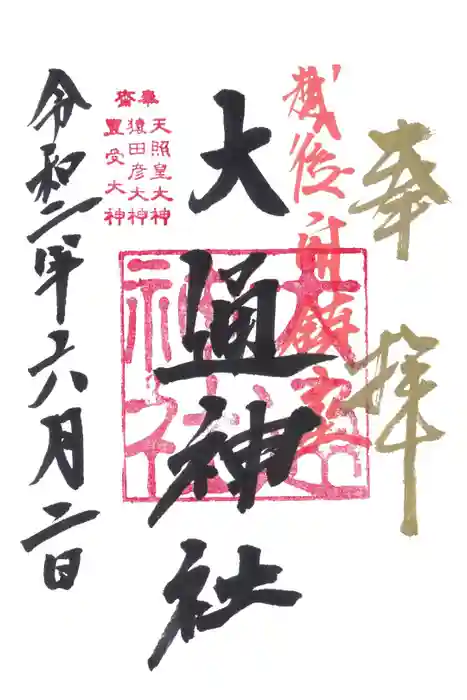 奉拝
越後 鎮座
大通神社
奉齋
天照皇大神
猿田彦大神
豊受大神
令和二年六月二日